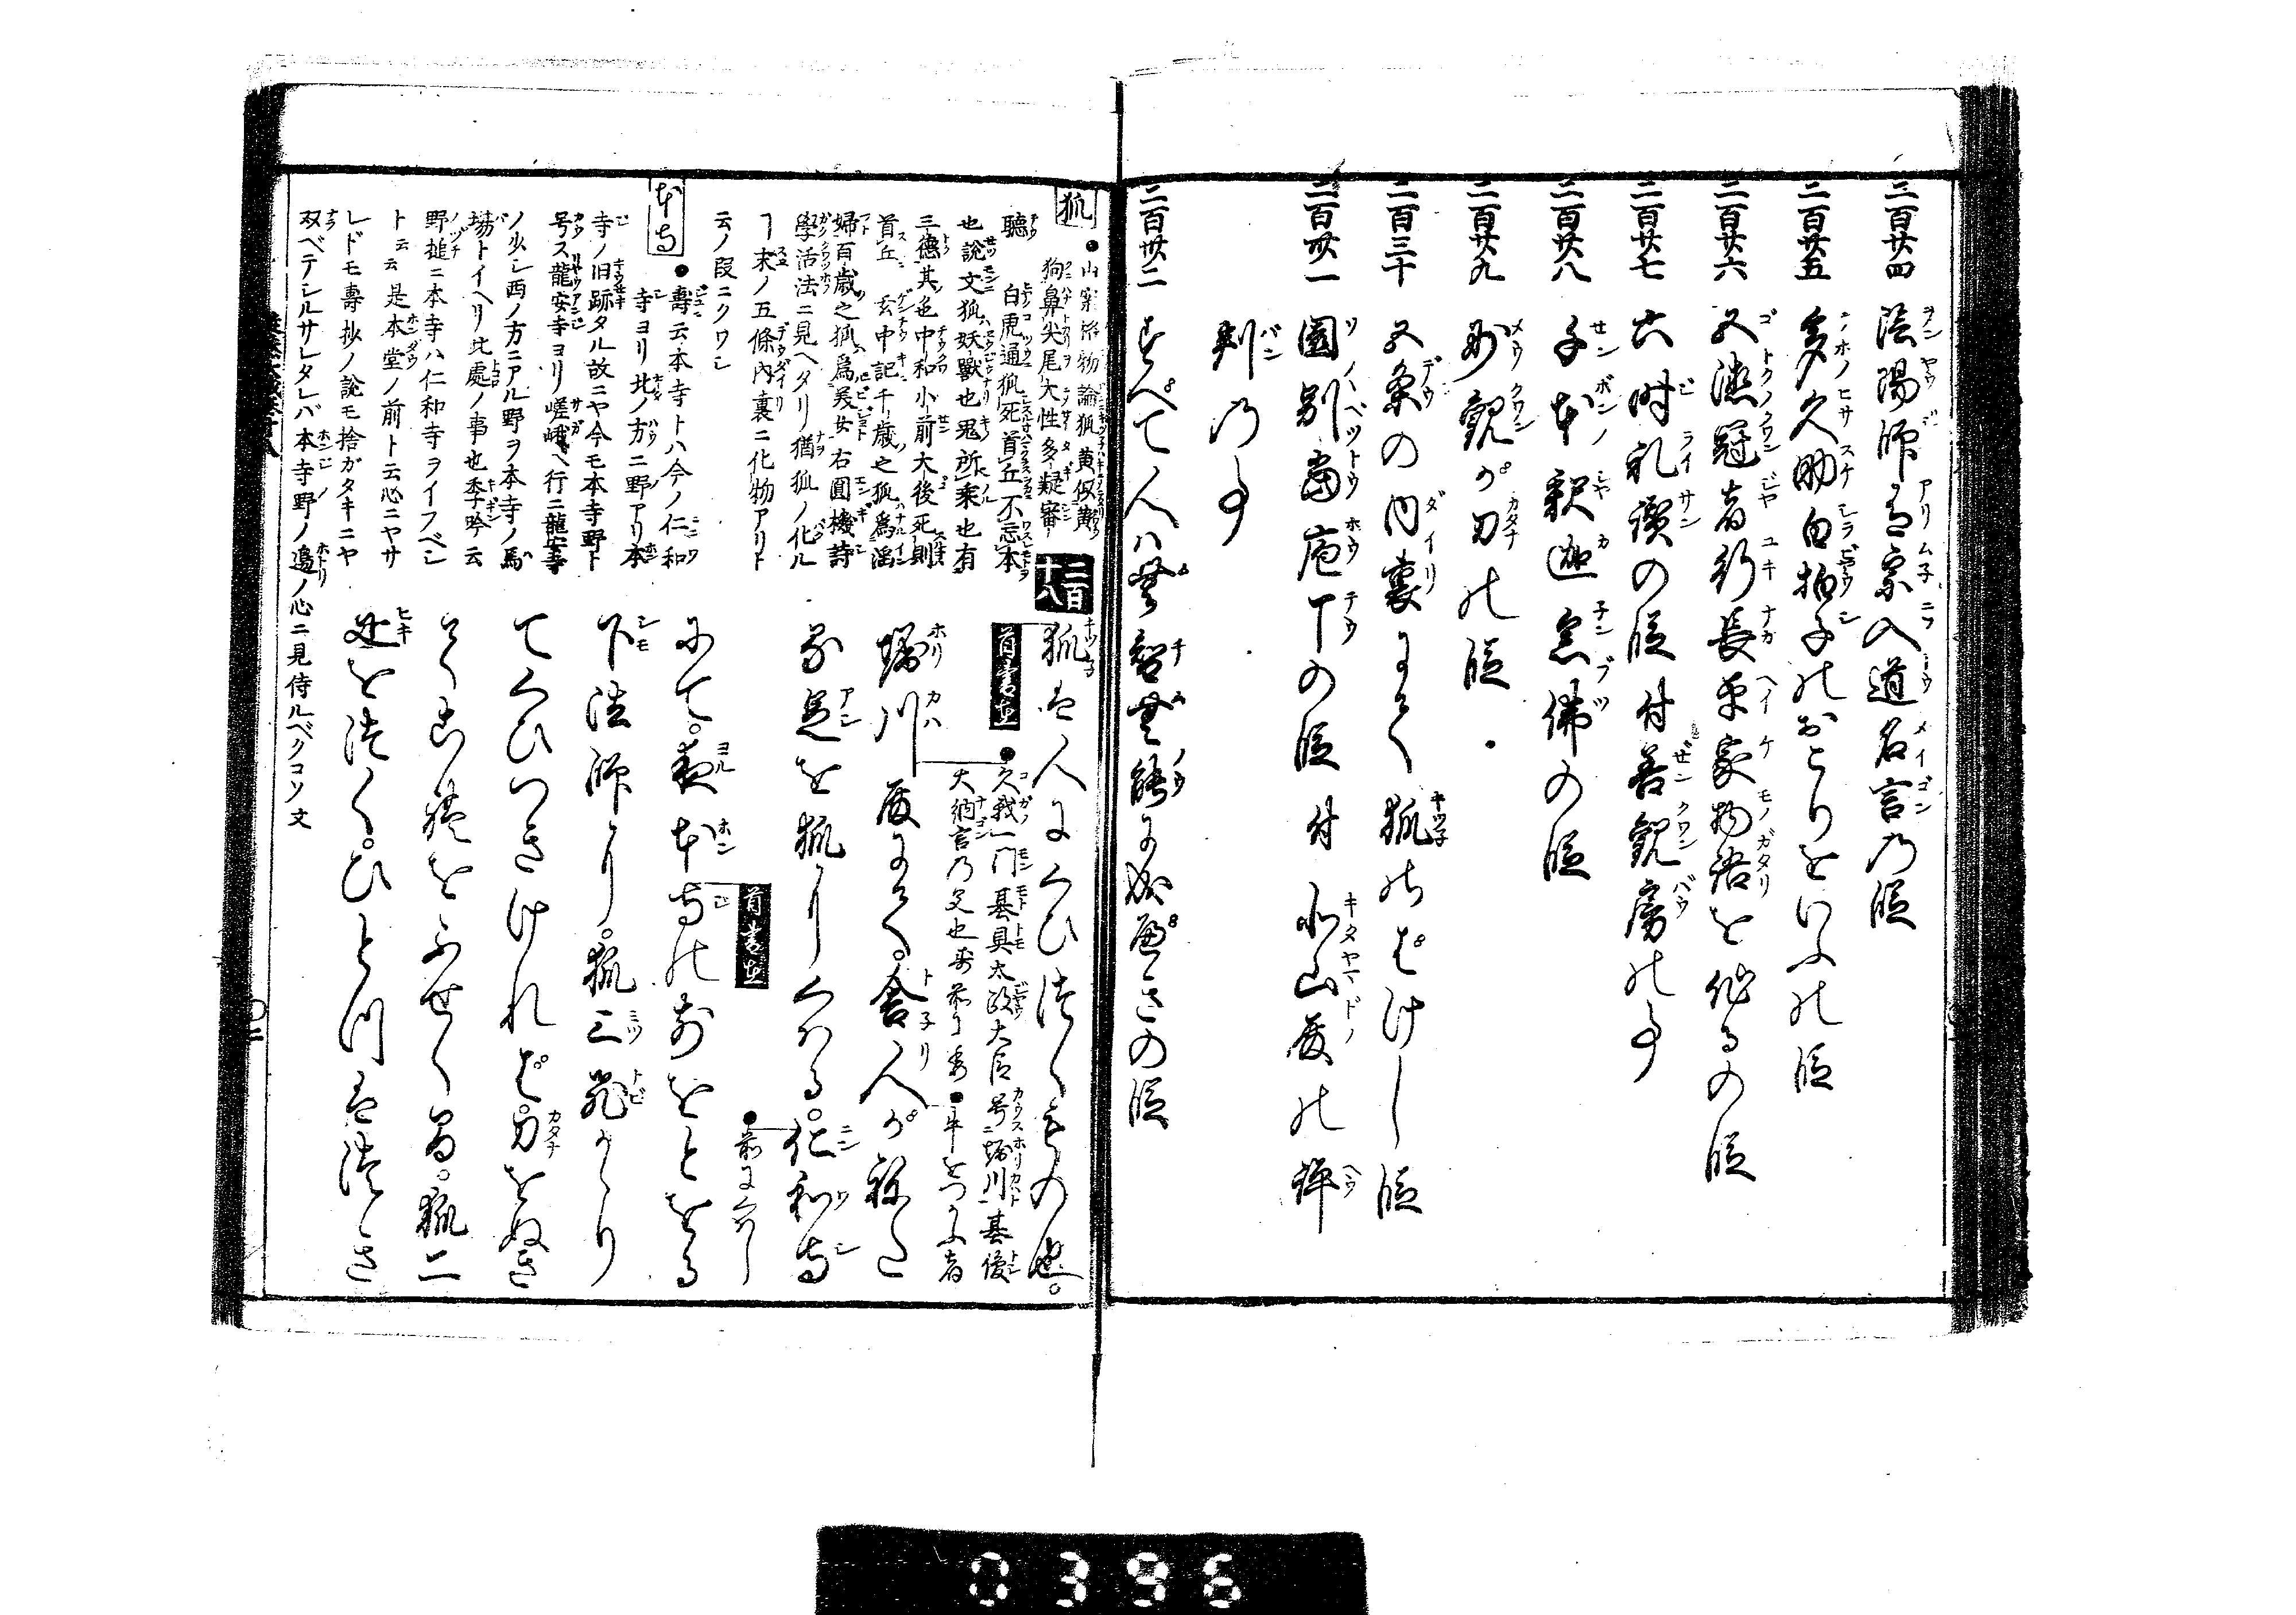 二百廿四 陰陽師有宗入道名言乃段
二百廿五 多久助白拍子のおこりをいふの段
二百廿六 五徳冠者行長平家物語を作るの段
二百廿七 六時礼讃の段付善観房の事
二百廿八 千本釈迦念佛の段
二百廿九 妙観が刀の段
二百三十 五条の内裏にて狐のばけし段
二百卅一 園別當庖丁の段付北山殿の評
判乃事
二百卅二 すべて人は無智無能に成べきの段
狐
●山家
物論狐黄
狗鼻尖尾大性多疑審
聴 白虎通狐死首丘不忘本
也説文狐妖獣也鬼所乗也有
三徳其色中和小前大後死則
首丘 玄中記千歳之狐為淫
婦百歳之狐為美女右圓機詩
學活法ニ見ヘタリ猶狐ノ化ル
ヿ末ノ五條内裏ニ化物アリト
云ノ段ニクワシ
本寺
●壽云本寺トハ今ノ仁和
寺ヨリ北ノ方ニ野アリ本
寺ノ旧跡タル故ニヤ今モ本寺野ト
号ス龍安寺ヨリ嵯峨ヘ行ニ龍安寺
ノ少シ西ノ方ニアル野ヲ本寺ノ馬
場トイヘリ此處ノ事也季吟云
野槌ニ本寺ハ仁和寺ヲイフベシ
ト云云是本堂ノ前ト云心ニヤサ
レドモ壽抄ノ説モ捨ガタキニヤ
双ベテシルサレタレバ本寺野ノ邉ノ心ニ見侍ルベクコソ文
二百十八
狐は人にくひつくもの也。
首書在
●久我一門基具太政大臣号堀川基俊
大納言乃父也
堀川殿にて。舎人がねた
る足を狐にくはる。仁和寺
●前にくはし
にて。夜本寺の前をとをる
首書在
下法師に。狐三飛かゝり
てくひつきければ。刀をぬき
てこれをふせぐ間。狐二
疋を突く。ひとつはつき
0396